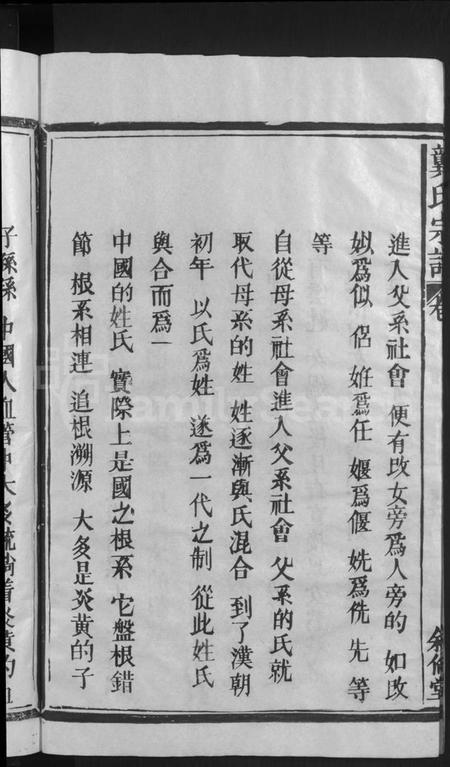 龔氏宗譜 卷
進入父系社會 便有改女旁爲人旁的 如改
姒爲似 侣 姙爲任 嫄爲傆 姺爲侁 先 等
等
自從母系社會進入父系社會 父系的氏就
取代母系的姓 姓逐漸與氏混合 到了漢朝
初年 以氏爲姓 遂爲一代之制 從此姓氏
與合而爲一
中國的姓氏 實際上是國之根系 它盤根錯
節 根系相連 追根溯源 大多是炎黄的子
子孫孫 中國人血管中大多流淌着炎黄的血
FamilySearch